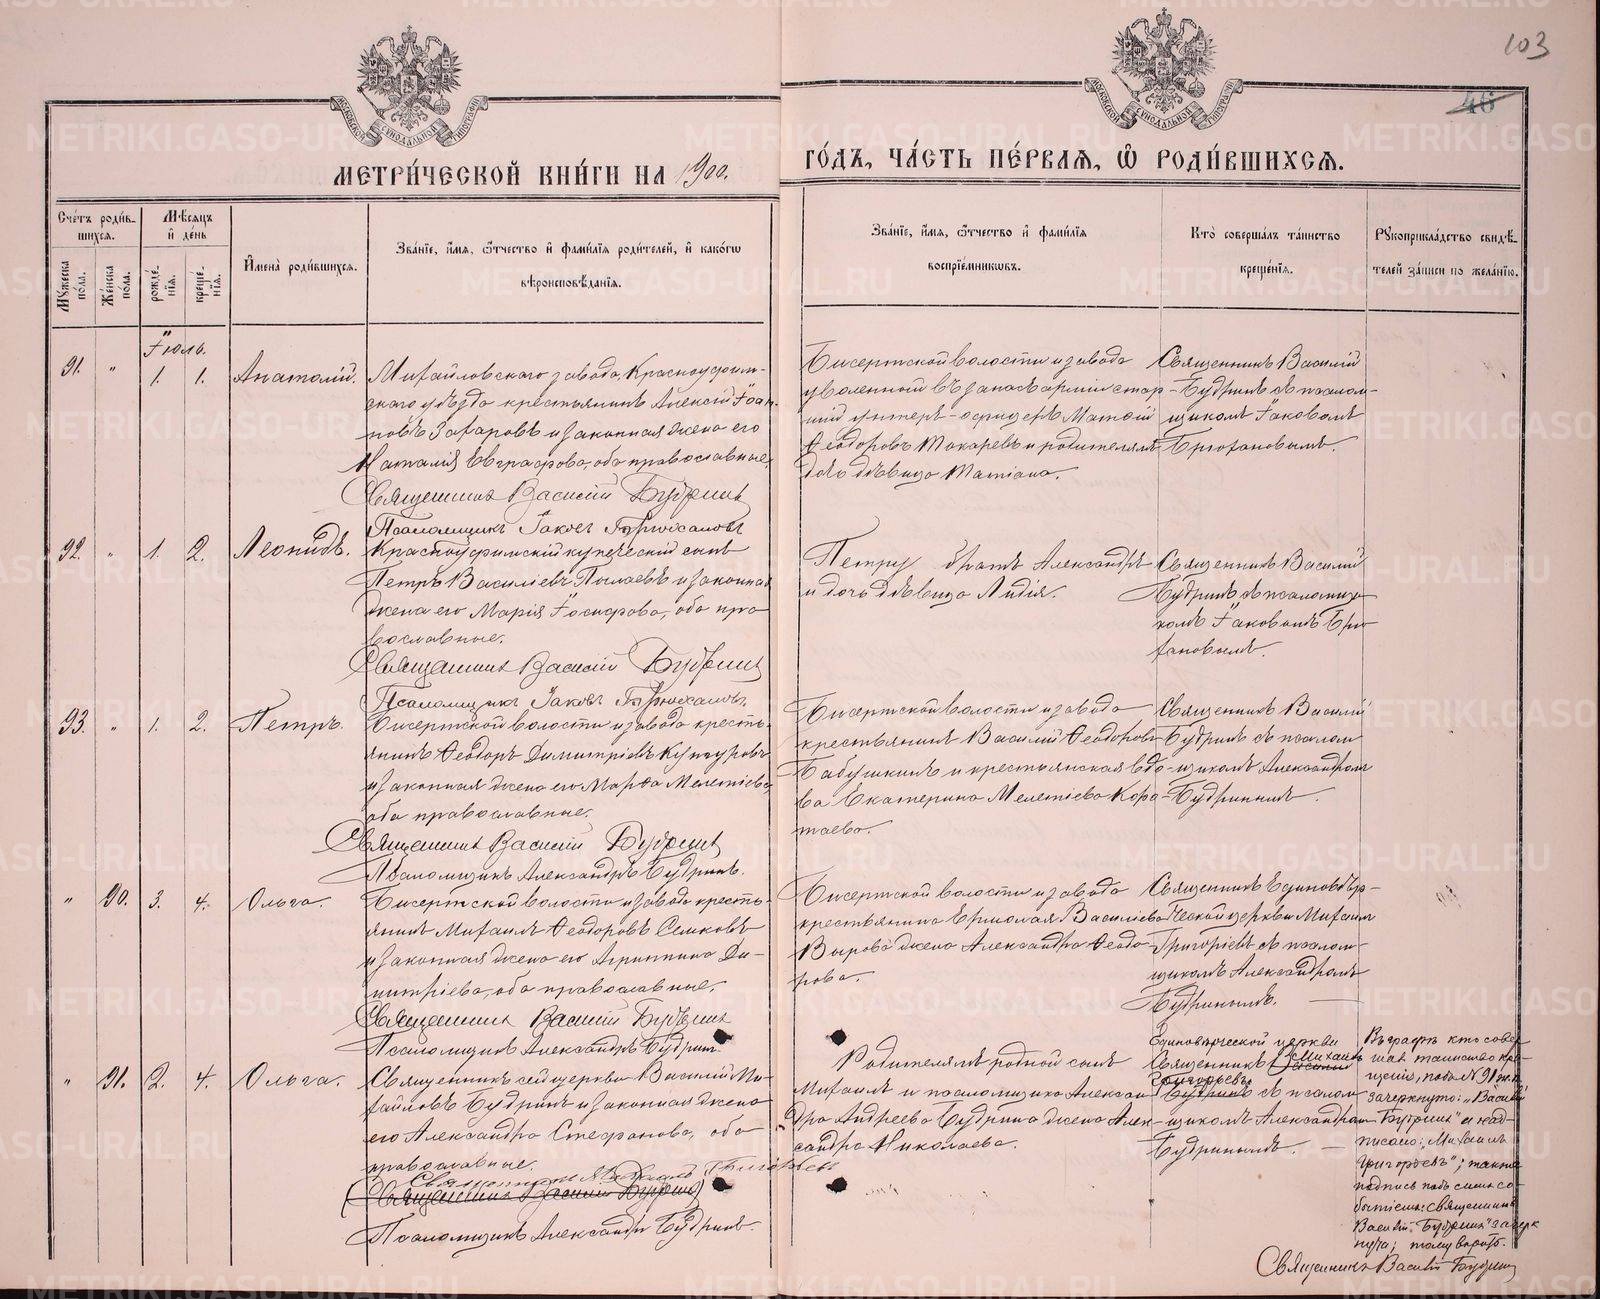 103
46
МОСКОВСКОЙ СѴНОДАЛЬНОЙ ТИПОГРАФІИ
МОСКОВСКОЙ СѴНОДАЛЬНОЙ ТИПОГРАФІИ
МЕТРИ́ЧЕСКОЙ КНИ́ГИ НА 1900.
ГО́ДЪ, ЧА́СТЬ ПЕ́РВАѦ, Ѡ҆ РОДИ́ВШИХСѦ.
Сче́тъ роди́в-
шихсѧ.
Мꙋ́жеска по́ла.
Же́нска по́ла.
Мѣ́сѧцъ и҆ де́нь
рожде́-нїѧ.
креще́-нїѧ.
И҆мена̀ роди́вшихсѧ.
Зва́нїе, и҆́мѧ, ѻ҆́тчество и҆ фами́лїѧ роди́телей, и҆ како́гѡ
вѣроисповѣ́данїѧ.
Зва́нїе, и҆́мѧ, ѻ҆́тчество и҆ фами́лїѧ
воспрїе́мникѡвъ.
Кто̀ соверша́лъ та́инство
креще́нїѧ.
Рꙋкоприкла́дство свидѣ́-
телей за́писи по жела́нїю.
Іюль.
91. " 1. 1. Анатолій.
Михайловскаго завода, Красноуфим-
скаго уѣзда крестьянинъ Алексій Іоан-
новъ Захаровъ и законная жена его
Наталія Евграфова, оба православные.
Священникъ Василій Будринъ
Псаломщикъ Іаковъ Брюхановъ
Бисертской волости и завода
уволенный въ запасъ арміи стар-
шій унтеръ-офицеръ Матѳій
Ѳеодоровъ Токаревъ и родителямъ
дочь дѣвица Татіана.
Священникъ Василій
Будринъ съ псалом-
щикомъ Іаковомъ
Брюхановымъ.
92. " 1. 2. Леонидъ.
Красноуфимскій купеческій сынъ
Петръ Василіевъ и законная
жена его Марія, оба пра
вославные.
Священникъ Василій Будринъ
Псаломщикъ Іаковъ Брюхановъ
Петру братъ Александръ
и дочь дѣвица Лидія.
Священникъ Василій
Будринъ съ псаломщи-
комъ Іаковомъ Брю-
хановымъ.
93. " 1. 2. Петръ.
Бисертской волости и завода кресть-
янинъ Ѳеодоръ Димитріевъ
и законная жена его Марѳа Мелетіева,
оба православные.
Священникъ Василій Будринъ
Псаломщикъ Александръ Будринъ.
Бисертской волости и завода
крестьянинъ Василій Ѳеодоровъ
Бабушкинъ и крестьянская вдо-
ва Екатерина Мелетіева Кора-
таева.
Священникъ Василій
Будринъ съ псалом-
щикомъ Александромъ
Будринымъ.
" 90. 3. 4. Ольга.
Бисертской волости и завода кресть-
янинъ Михаилъ Ѳеодоровъ Сенковъ
и законная жена его Агриппина Ди-
митріева, оба православные.
Священникъ Василій Будринъ
Псаломщикъ Александръ Будринъ
Бисертской волости и завода
крестьянина Ермолая Василіева
Вырова жена Александра Ѳеодо-
рова.
Священникъ Единовѣр-
ческой церкви Михаилъ
Григоріевъ съ псалом-
щикомъ Александромъ
Будринымъ.
" 91. 2. 4. Ольга.
Священникъ сей церкви Василій Ми-
хайловъ Будринъ и законная жена
его Александра Стефанова, оба
православные.
Священникъ Михаилъ Григорьевъ
(Священникъ Василій Будринъ)
Псаломщикъ Александръ Будринъ.
Родителямъ родной сынъ
Михаилъ и псаломщика Алексан-
дра Андреева Будрина жена Алек-
сандра Николаева.
Единовѣрческой церкви
Священникъ Василій Михаилъ
Григорьевъ
Будринъ съ псалом-
щикомъ Александромъ
Будринымъ.
Въ графѣ кто совер-
шал таинство кре-
щенія, подъ № 91 ж.п.
зачеркнуто: „Василій
Будринъ" и над-
писано: „Михаилъ
Григорьевъ"; также
подпись подъ симъ со-
бытіемъ: священникъ
Василій Будринъ" зачерк
нута; тому вѣрить.
Священникъ Василій Будринъ
METRIKI.GASO-URAL.RU